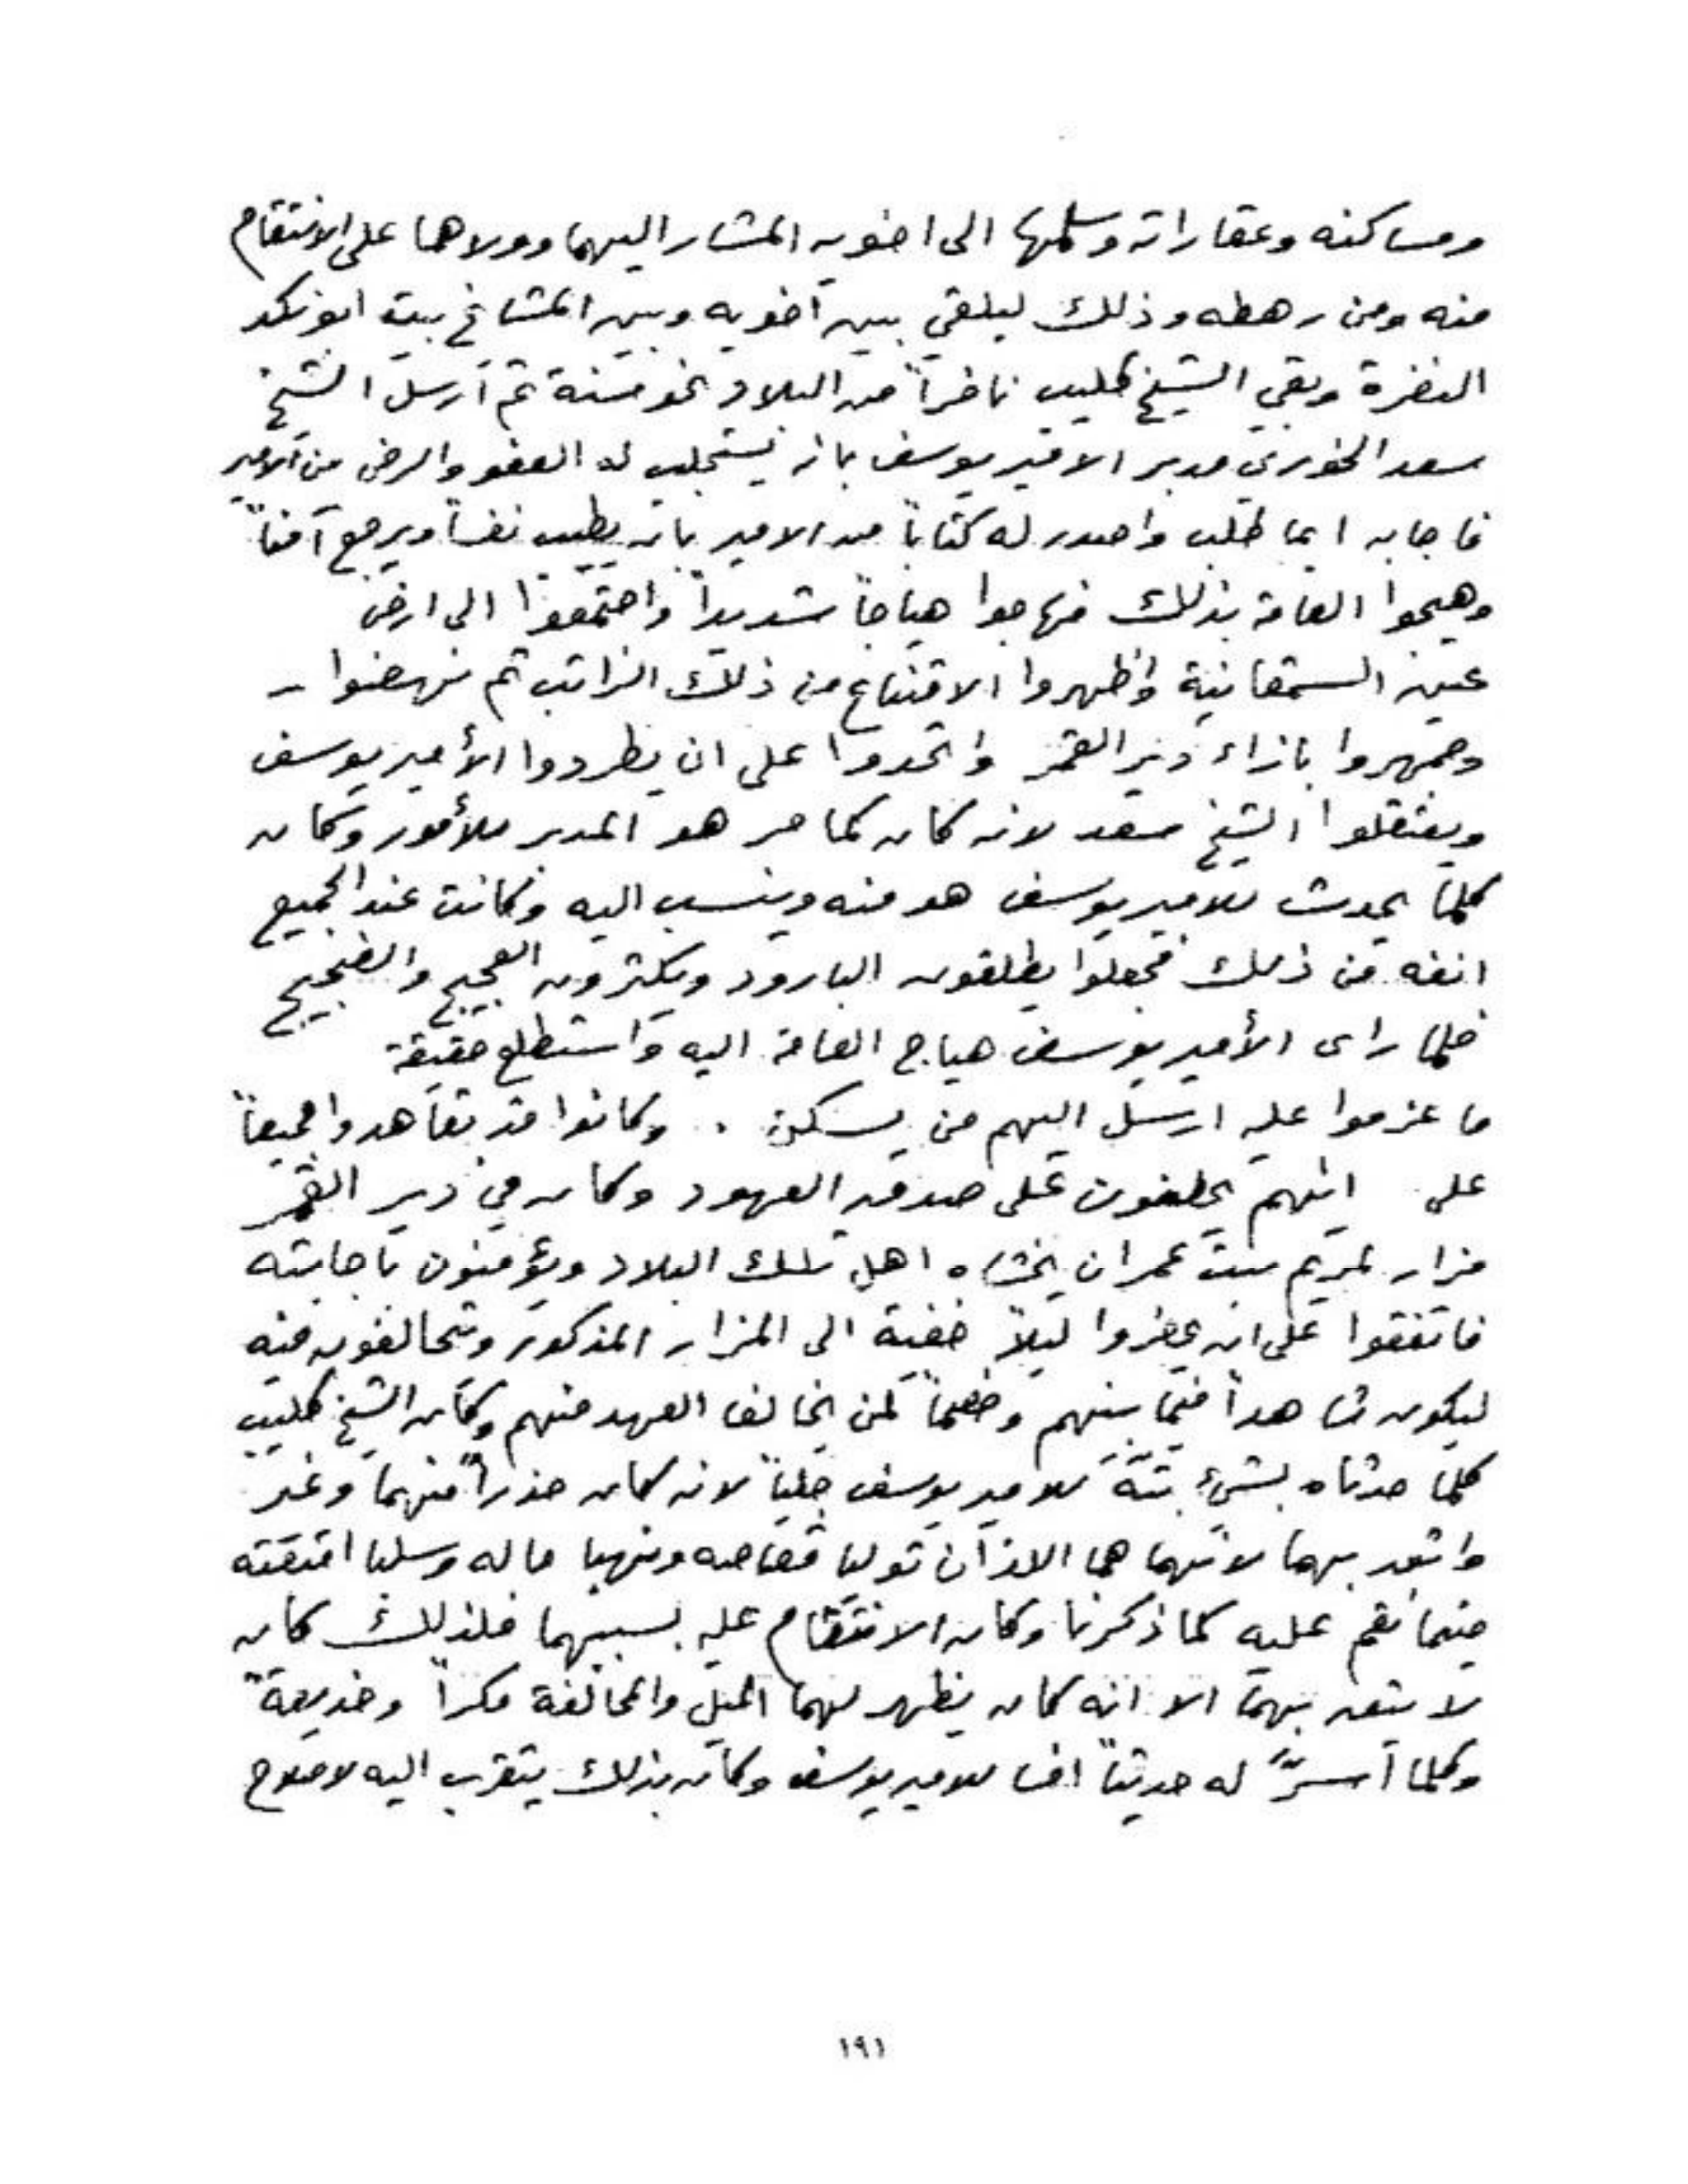 ومساكنه وعقاراته وسلمها الى اخويه المشار اليهما وولاهما على الانتقام
منه ومن رهطه وذلك ليلقي بين اخويه وبين المشايخ بيت ابو نكد
النفرة وبقي الشيخ كليب نافراً من البلاد نحو سنة ثم ارسل الشيخ
سعد الخوري مدبر الامير يوسف بانه يستجلب له العفو والرضى من الامير
فاجابه ايما طلب واصدر له كتاباً من الامير بانه يطيب نفساً ويرجع آمناً
وهيجوا العامة بذلك فهاجوا هياجاً شديداً واجتمعوا الى ارض
عين السمقانية واظهروا الامتناع من ذلك الراتب ثم نهضوا
وجمهروا بازاء دير القمر واتحدوا على ان يطردوا الأمير يوسف
ويعتقلوا الشيخ سعد لانه كان كما مر هو المدبر للأمور وكان
كلما يحدث للامير يوسف هو منه وينسب اليه وكانت عند الجميع
انفه من ذلك فجعلوا يطلقون البارود ويكثرون العجيج والضجيج
فلما راى الأمير يوسف هياج العامة اليه واستطلع حقيقة
ما عزموا عليه ارسل اليهم من يسكن . وكانوا قد تعاهدوا جميعاً
على انهم يحلفون على صدق العهود وكان في دير القمر
مزار لمريم بنت عمران يخشاه اهل تلك البلاد ويؤمنون باجابته
فاتفقوا على ان يحضروا ليلاً خفية الى المزار المذكور ويتحالفون فيه
ليكون شاهداً فيما بينهم وخصماً لمن يخالف العهد منهم وكان الشيخ كليب
كلما حدثاه بشيءٍ بثّه للامير يوسف جلياً لانه كان حذراً منهما وغير
واثق بهما لانهما هما اللذان توليا قصاصه ونهبا ماله وسلبا امتعته
حينما نقم عليه كما ذكرنا وكان الانتقام عليه بسببهما فلذلك كان
لا يثق بهما الا انه كان يظهر لهما الميل والمحالفة مكراً وخديعةً
وكلما أسرّا له حديثاً افشا للامير يوسف وكان بذلك يتقرب اليه لاصلاح
١٩١